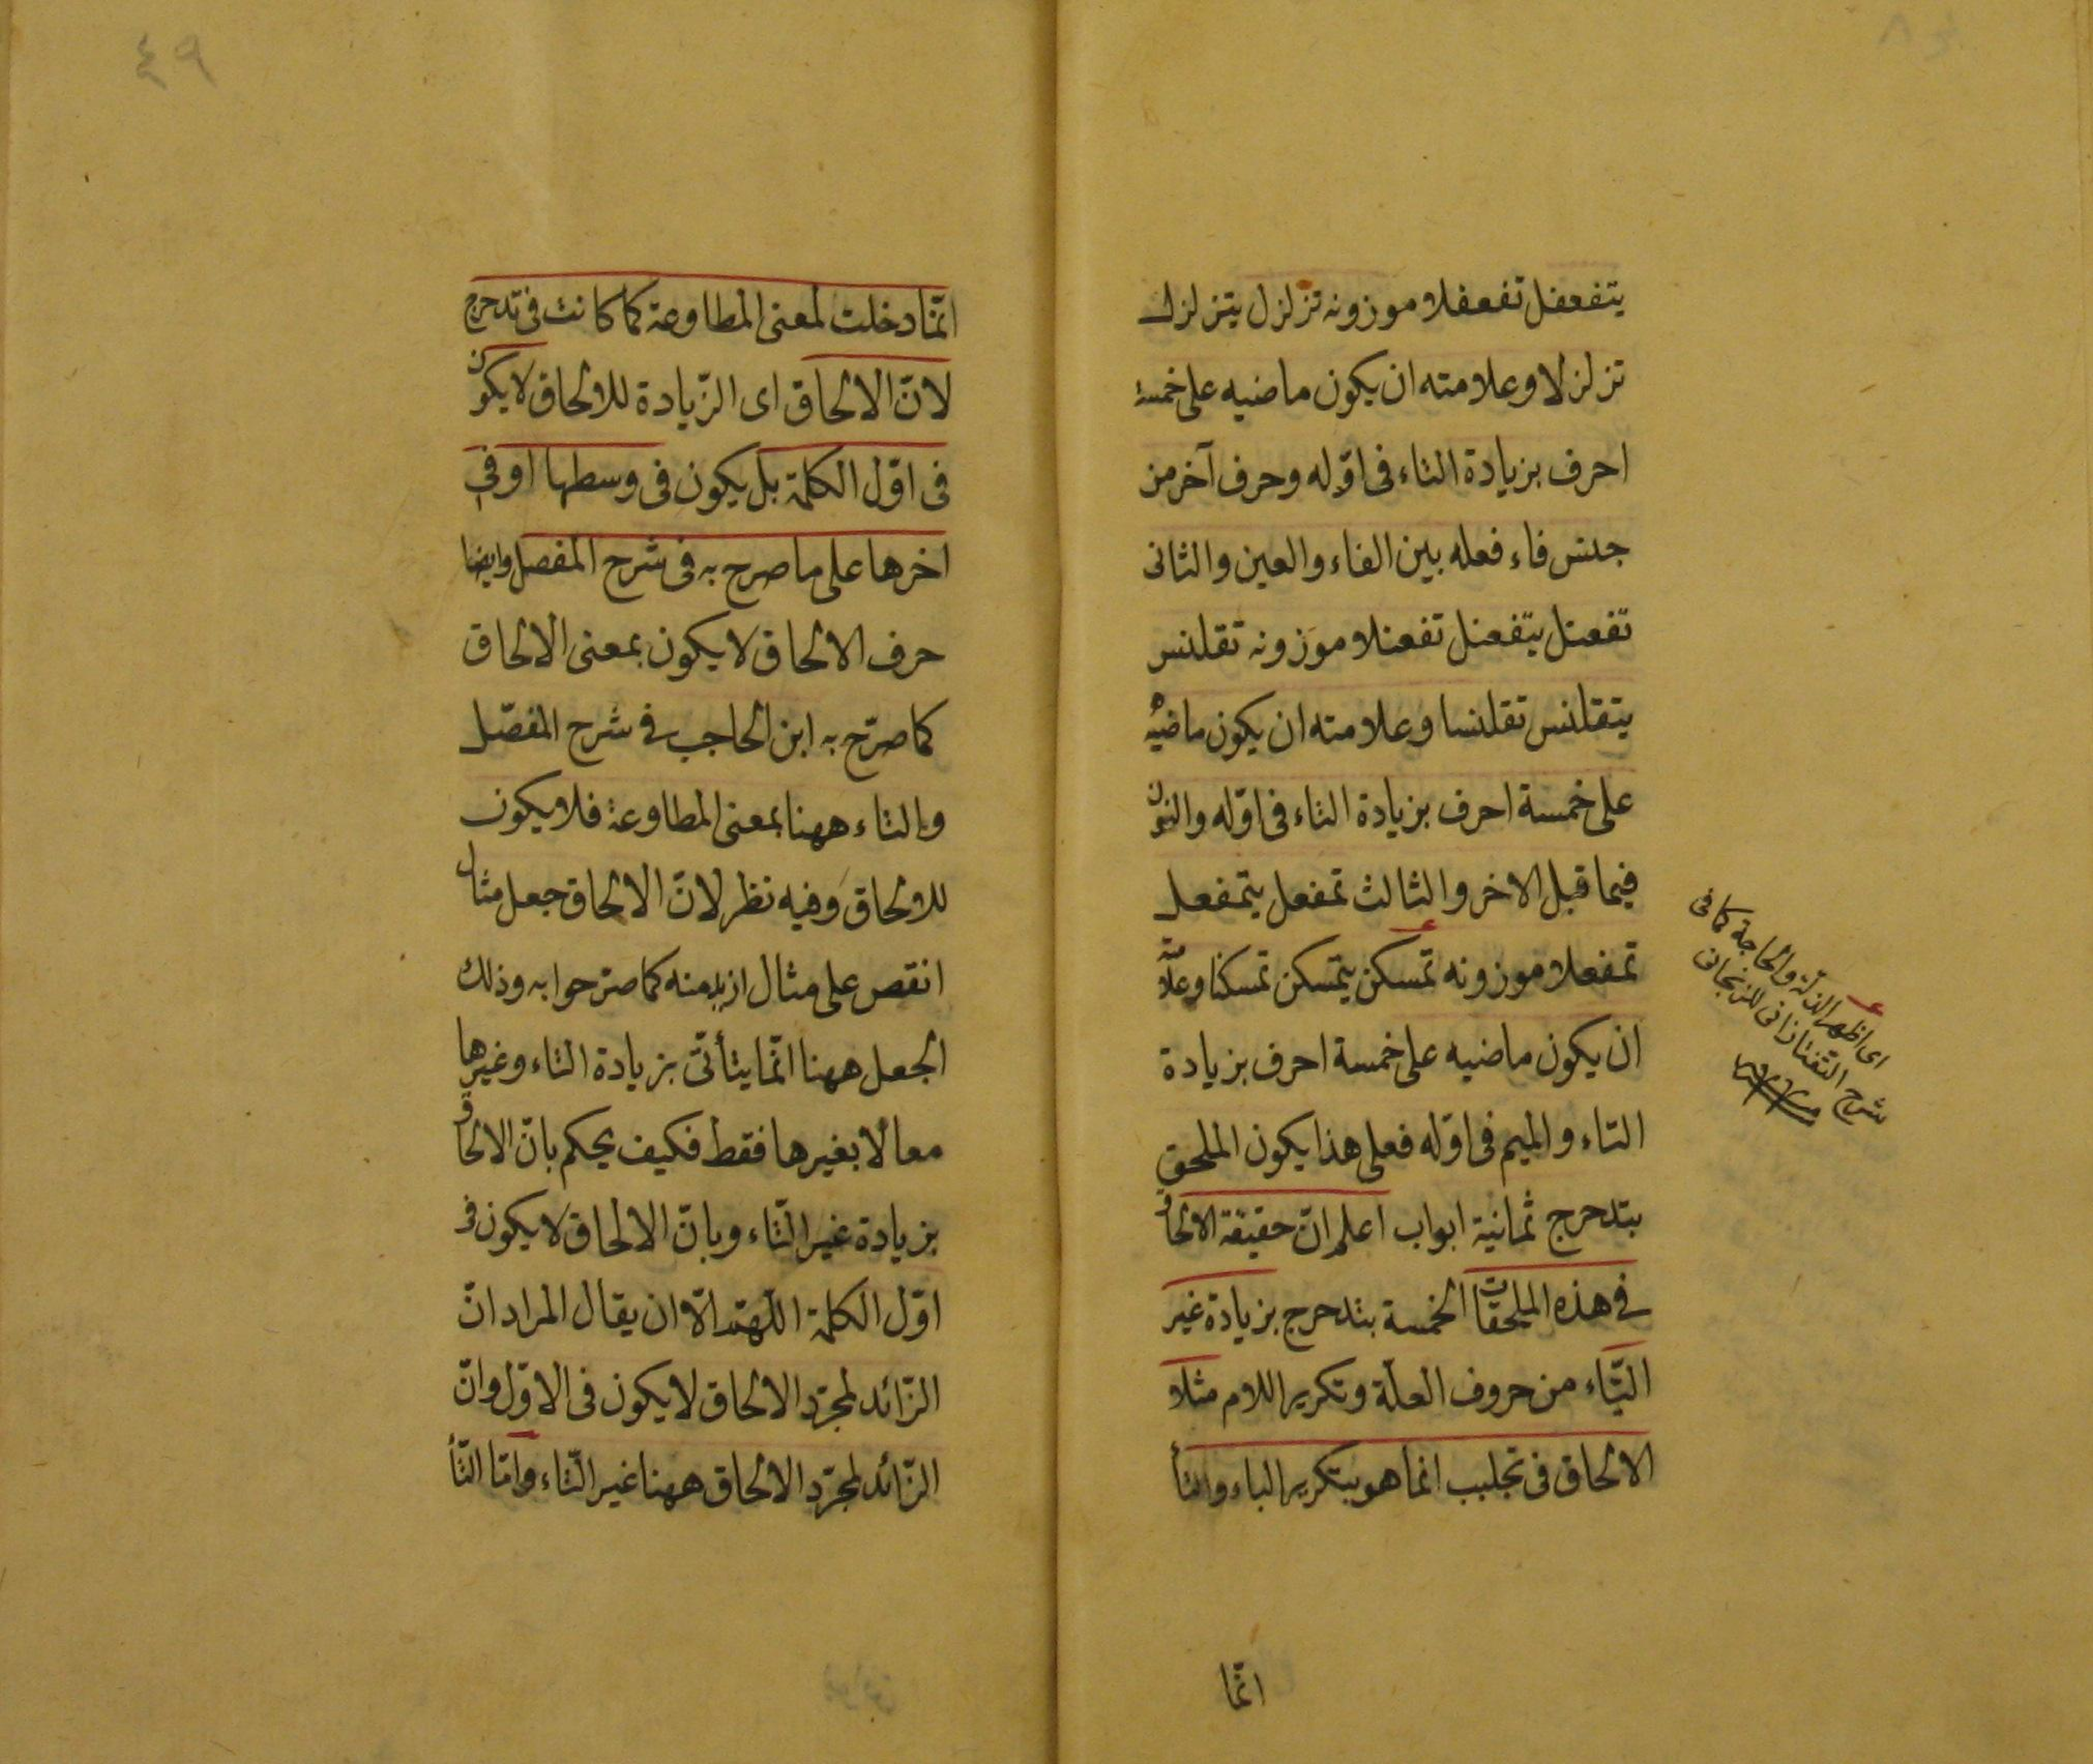 يتفعفل تفعفلا موزونه تزلزل يتزلزل
تزلزلا وعلامته ان يكون ماضيه على خمسة
احرف بزيادة التاء فى اوّله وحرف آخر من
جنس فاء فعله بين الفاء والعين والثانى
تفعنل يتفعنل تفعنلا موزونه تقلنس
يتقلنس تقلنسا وعلامته ان يكون ماضيه
على خمسة احرف بزيادة التاء فى اوّله والنون
فيما قبل الاخر والثالث تمفعل يتمفعل
تمفعلا موزونه تمسكن يتمسكن تمسكنا وعلامته
ان يكون ماضيه على خمسة احرف بزيادة
التاء والميم فى اوّله فعلى هذا يكون الملحق
بتدحرج ثمانية ابواب اعلم انّ حقيقة الالحاق
فى هذه الملحقات الخمسة بتدحرج بزيادة غير
التّاء من حروف العلّة وتكرير اللام مثلا
الالحاق فى تجلبب انما هو بتكرير الباء والتأ
اى اظهر الذلة والحاجة كما فى
شرح التفتازانى للزنجانى
انّما
٤٩
انّما دخلت لمعنى المطاوعة كما كانت فى تدحرج
لانّ الالحاق اى الزّيادة للالحاق لا يكون
فى اوّل الكلمة بل يكون فى وسطها او فى
اخرها على ما صرح به فى شرح المفصل وايضا
حرف الالحاق لا يكون بمعنى الالحاق
كما صرّح به ابن الحاجب فى شرح المفصّل
والتاء ههنا بمعنى المطاوعة فلا يكون
للالحاق وفيه نظر لانّ الالحاق جعل مثال
انقص على مثال ازيد منه كما صرّحوا به وذلك
الجعل ههنا انّما يتأتّى بزيادة التاء وغيرها
معا لا بغيرها فقط فكيف يحكم بانّ الالحاق
بزيادة غير التّاء وبانّ الالحاق لا يكون فى
اوّل الكلمة اللّهمّ الّا ان يقال المراد انّ
الزّائد لمجرّد الالحاق لا يكون فى الاوّل وانّ
الزّائد لمجرّد الالحاق ههنا غير التّاء وامّا التّأ